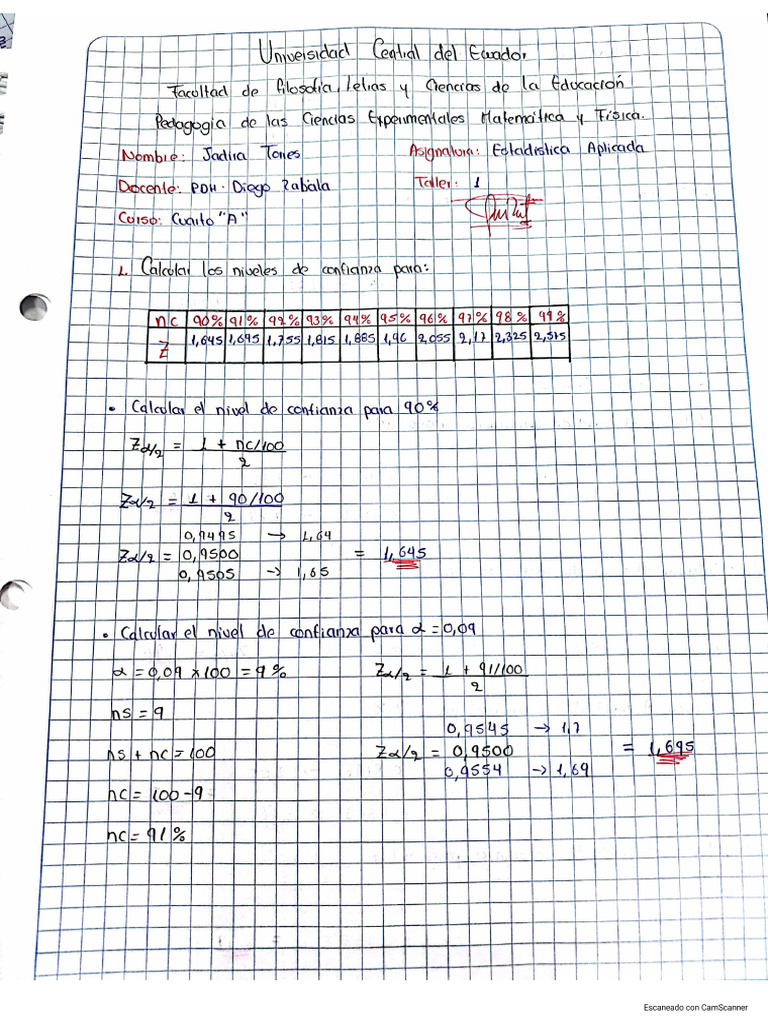 Universidad Central del Ecuador.
Facultad de filosofía, Letras y Ciencias de la Educación
Pedagogía de las Ciencias Experimentales Matemática y Física.
Nombre: Jadira Torres Asignatura: Estadística Aplicada
Docente: PDH. Diego Zabala Taller: 1
Curso: Cuarto "A"
1. Calcular los niveles de confianza para:
nc 90% 91% 92% 93% 94% 95% 96% 97% 98% 99%
Z 1,645 1,695 1,755 1,815 1,885 1,96 2,055 2,17 2,325 2,575
• Calcular el nivel de confianza para 90%
Zα/2 = 1 + nc/100
2
Zα/2 = 1 + 90/100
2
0,9495 → 1,64
Zα/2 = 0,9500 = 1,645
0,9505 → 1,65
• Calcular el nivel de confianza para α = 0,09
α = 0,09 x 100 = 9% Zα/2 = 1 + 91/100
2
ns = 9
0,9545 → 1,7
ns + nc = 100 Zα/2 = 0,9500 = 1,695
0,9554 → 1,69
nc = 100 - 9
nc = 91%
Escaneado con CamScanner